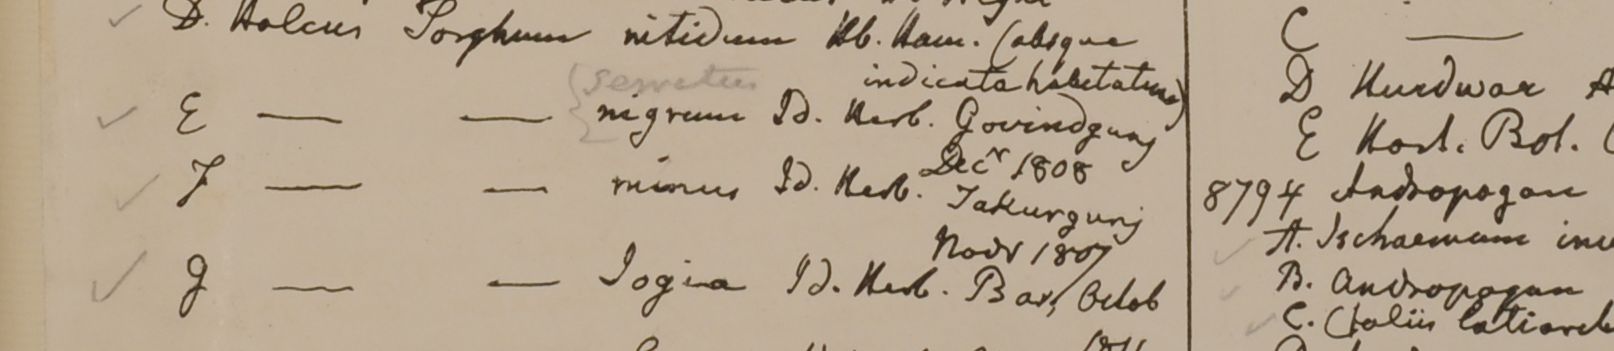 D. Holcus Sorghum nitidum Hb. Ham. (absque
indicata habitatura)
(serratus
E — — nigrum Id. Herb. Govindgunj
Decr 1808
F — — minus Id. Herb. Takurgunj
Novr 1807
G — — Jogia Id. Herb. Bar, Octob
C —
D Hurdwar
E Hort. Bot.
8794 Andropogon
A. Ischaemum
B. Andropogon
C.